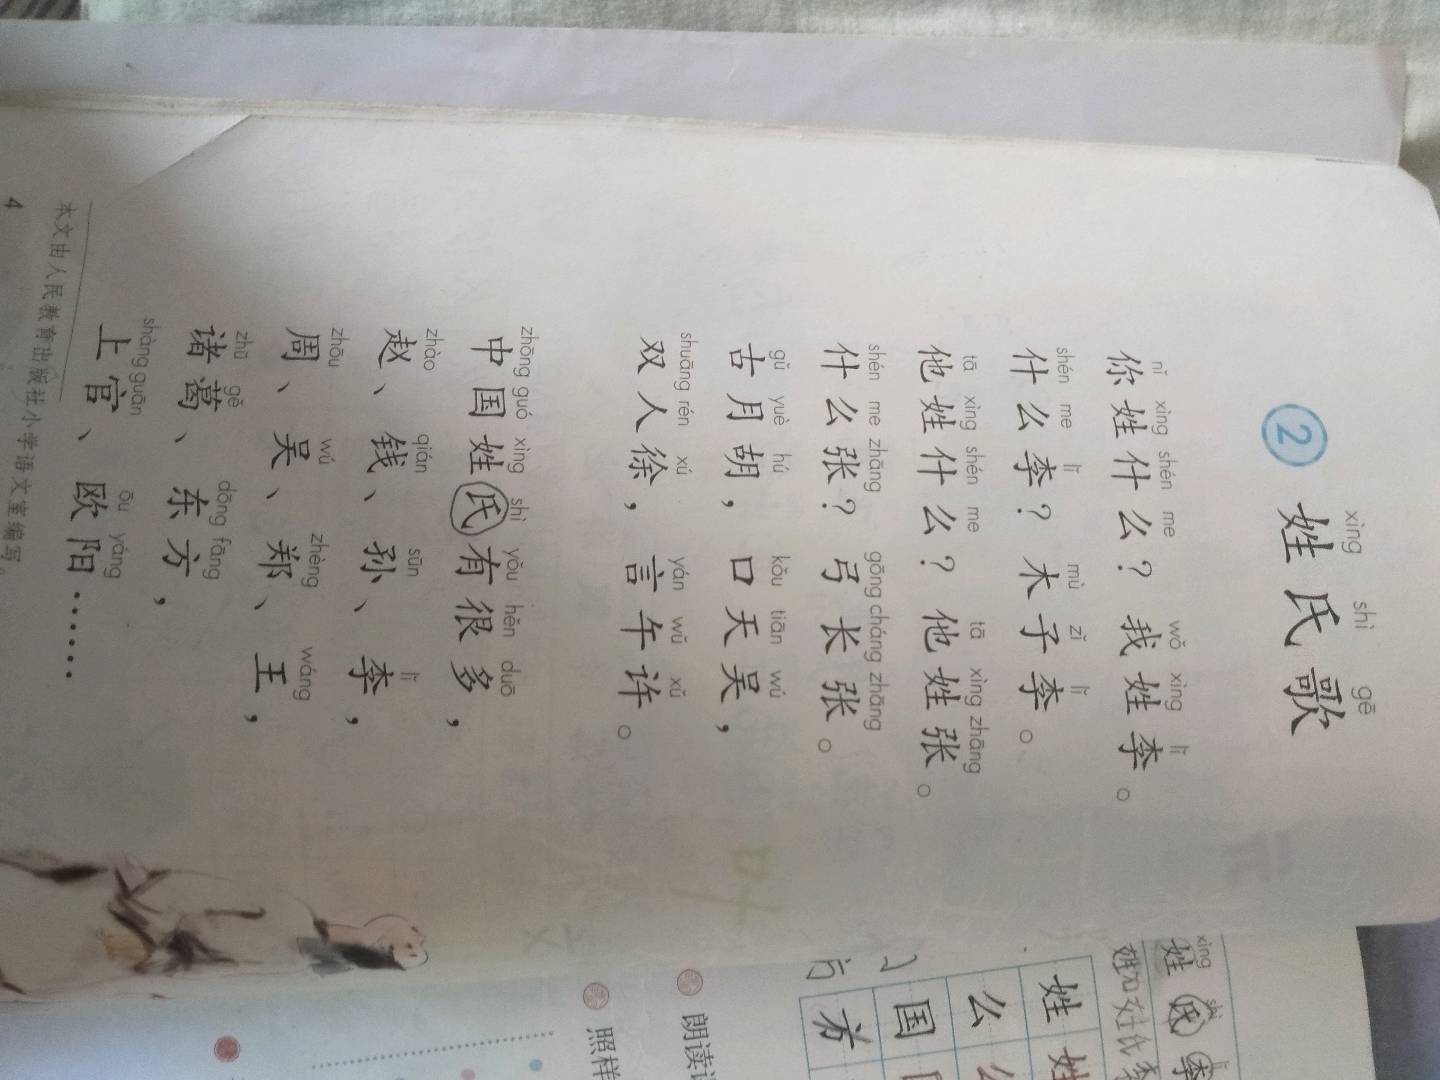 xìng shì gē
② 姓氏歌
nǐ xìng shén me wǒ xìng lǐ
你姓什么？我姓李。
shén me lǐ mù zǐ lǐ
什么李？木子李。
tā xìng shén me tā xìng zhāng
他姓什么？他姓张。
shén me zhāng gōng cháng zhāng
什么张？弓长张。
gǔ yuè hú kǒu tiān wú
古月胡，口天吴，
shuāng rén xú yán wǔ xǔ
双人徐，言午许。
zhōng guó xìng shì yǒu hěn duō
中国姓氏有很多，
zhào qián sūn lǐ
赵、钱、孙、李，
zhōu wú zhèng wáng
周、吴、郑、王，
zhū gě dōng fāng
诸葛、东方，
shàng guān ōu yáng
上官、欧阳……
本文由人民教育出版社小学语文室编写。
4
xìng shì
姓 氏 李
姓 姓
么 么
国
方
朗读
照样